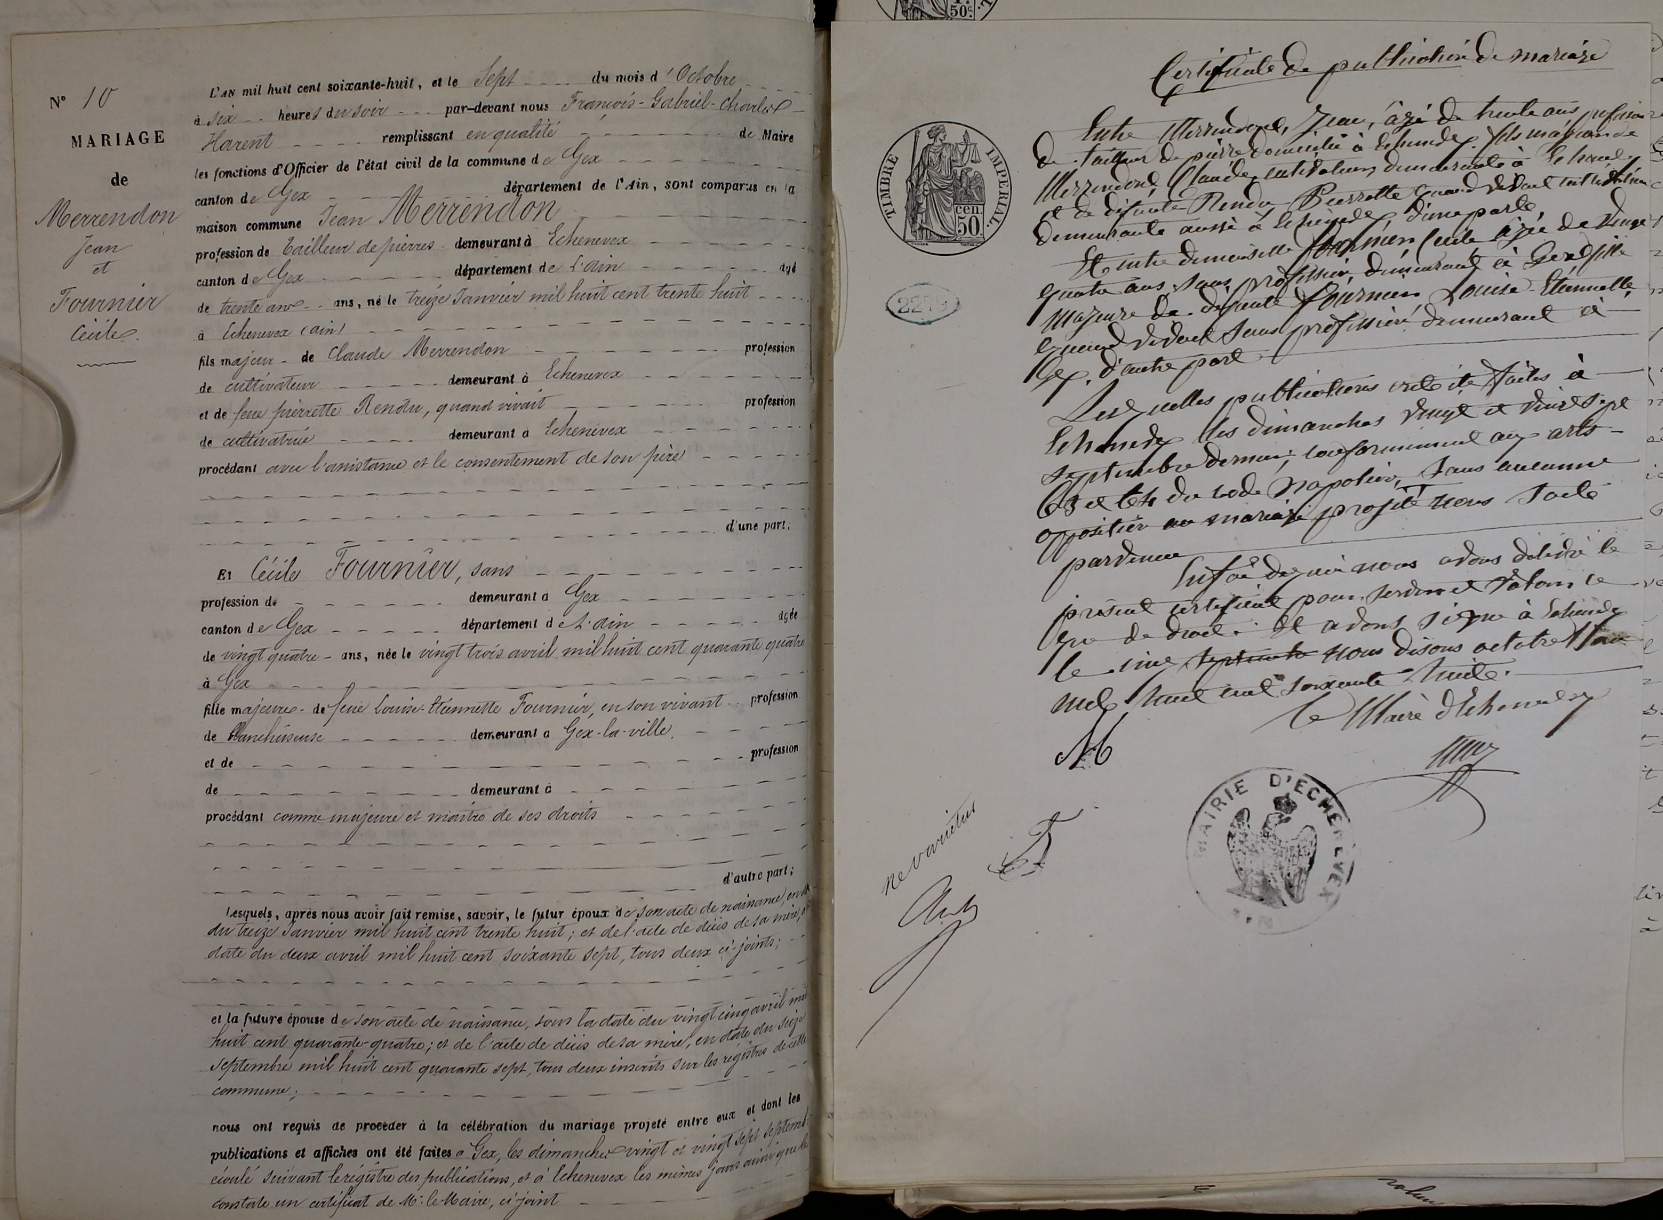 N° 10
MARIAGE
de
Merrendon
Jean
et
Fournier
Cécile
L'AN mil huit cent soixante-huit, et le Sept du mois d'Octobre
à six heures du soir par-devant nous François-Gabriel-Charles
Harent remplissant en qualité de Maire
les fonctions d'Officier de l'état civil de la commune de Gex
canton de Gex département de l'Ain, sont comparus en la
maison commune Jean Merrendon
profession de Tailleur de pierres demeurant à Echenevex
canton de Gex département de L'Ain agé
de trente ans ans, né le treize Janvier mil huit cent trente huit
à Echenevex (ain)
fils majeur de Claude Merrendon profession
de cultivateur demeurant à Echenevex
et de feue pierrette Rendu, quand vivait profession
de cultivatrice demeurant à Echenevex
procédant avec l'assistance et le consentement de son père
d'une part;
Et Cécile Fournier, sans
profession de demeurant à Gex
canton de Gex département de L'ain agée
de vingt quatre ans, née le vingt trois avril mil huit cent quarante quatre
à Gex
fille majeure de feue Louise-Etiennette Fournier, en son vivant profession
de Blanchisseuse demeurant à Gex-la-ville
et de profession
de demeurant à
procédant comme majeure et maître de ses droits
d'autre part;
Lesquels, après nous avoir fait remise, savoir, le futur époux de son acte de naissance, en date
du treize Janvier mil huit cent trente huit; et de l'acte de décès de sa mère, en
date du deux avril mil huit cent soixante sept, tous deux ci-joints;
et la future épouse de son acte de naissance, sous la date du vingt cinq avril mil
huit cent quarante-quatre; et de l'acte de décès de sa mère, en date du seize
septembre mil huit cent quarante sept, tous deux inscrits sur les registres de cette
commune;
nous ont requis de procéder à la célébration du mariage projeté entre eux et dont les
publications et affiches ont été faites à Gex, les dimanches vingt et vingt sept septembre
écoulé suivant le régistre des publications, et à Echenevex les mêmes jours ainsi que le
constate un certificat de Mr. le Maire, ci-joint
50c
Certificat de publication de mariage
TIMBRE IMPERIAL
50 cen
Entre Merrendon, Jean, âgé de trente ans, profession
de tailleur de pierre domicilié à Echenevex, fils majeur de
Merrendon Claude cultivateur demeurant à Echenevex
et de défunte Rendu Pierrette quand vivait cultivatrice
demeurante aussi à Echenevex d'une part
Et entre demoiselle Fournier Cécile âgée de vingt
quatre ans, sans profession, demeurant à Gex fille
majeure de défunte Fournier Louise Etiennette
quand vivait sans profession demeurant à
Gex, d'autre part
Lesquelles publications ont été faites à
Echenevex les dimanches vingt et vingt sept
septembre dernier, conformément aux arts
63 et 64 du code Napoléon, sans aucune
opposition au mariage projeté nous soit
parvenue
En foi de quoi nous avons délivré le
présent certificat pour servir et valoir ce
que de droit. Et avons signé à Echenevex
le cinq septembre nous disons octobre
mil huit cent soixante huit.
Le Maire d'Echenevex
M
MAIRIE D'ECHENEVEX
AIN
ne varietur
F